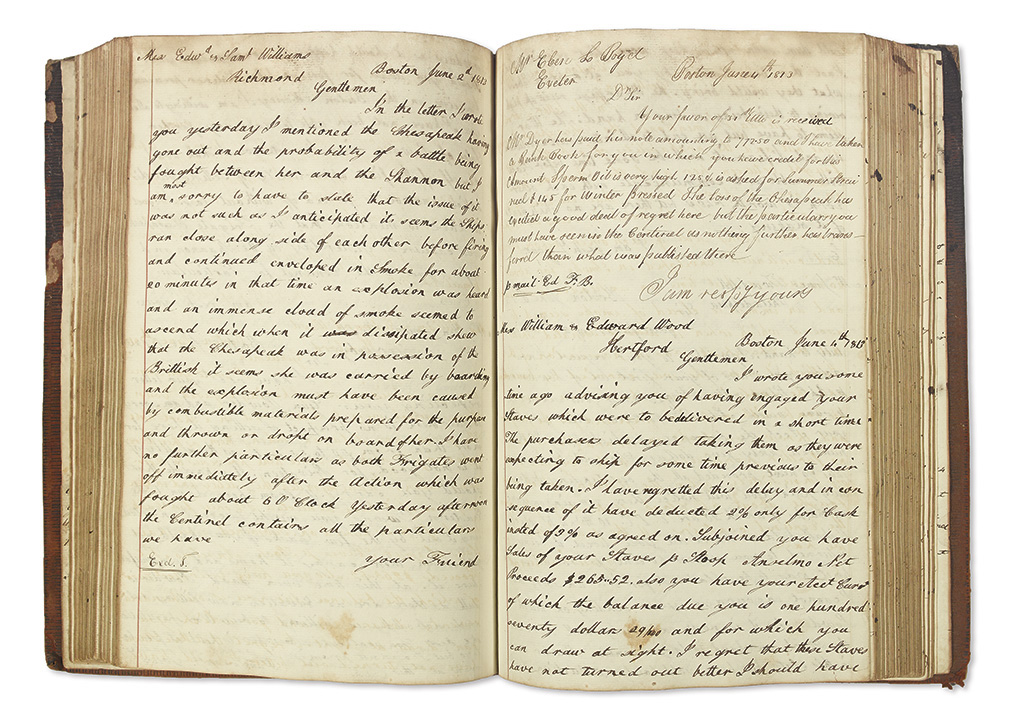 Mess Edwd & Saml Williams
Richmond Boston June 2d 1813
Gentlemen
In the letter I wrote
you yesterday I mentioned the Chesapeak having
gone out and the probability of a battle being
fought between her and the Shannon but I
am most sorry to have to state that the issue of it
was not such as I anticipated it seems the Ships
ran close along side of each other before firing
and continued enveloped in Smoke for about
20 minutes in that time an explosion was heard
and an immense cloud of smoke seemed to
ascend which when it was dissipated shew
that the Chesapeak was in possession of the
Brittish it seems she was carried by boarding
and the explosion must have been caused
by combustible materials prepared for the purpose
and thrown or dropt on board of her. I have
no further particulars as both Frigates went
off immediately after the Action which was
fought about 6 O'Clock Yesterday afternoon
the Centinel contains all the particulars
we have
your Friend
Exd.
Mr Eben L Boyd
Exeter Boston June 4th 1813
Dr Sir
Your favor of Ulto is received
Mr Dyer has paid his note amounting to and I have taken
a Bank Book for you in which you have credit for this
amount Sperm Oil is very high 125 is asked for Summer Strai
ned & 145 for Winter pressed The loss of the Chesapeak has
excited a good deal of regret here but the particulars you
must have seen in the Centinel as nothing further has trans-
pired than what was published there
p mail. Ed F. B. I am respy yours
Mess William & Edward Wood
Hertford Boston June 4th 1813
Gentlemen
I wrote you some
time ago advising you of having engaged your
Staves which were to be delivered in a short time
The purchasers delayed taking them as they were
expecting to ship for some time previous to their
being taken. I have regretted this delay and in con
sequence of it have deducted 2% only for Cask
insted of as agreed on. Subjoined you have
Sales of your Staves p Sloop Anselmo Net
Proceeds $265..52. also you have your Acct Curr
of which the balance due you is one hundred
seventy dollars 29/100 and for which you
can draw at sight. I regret that these Staves
have not turned out better I should have